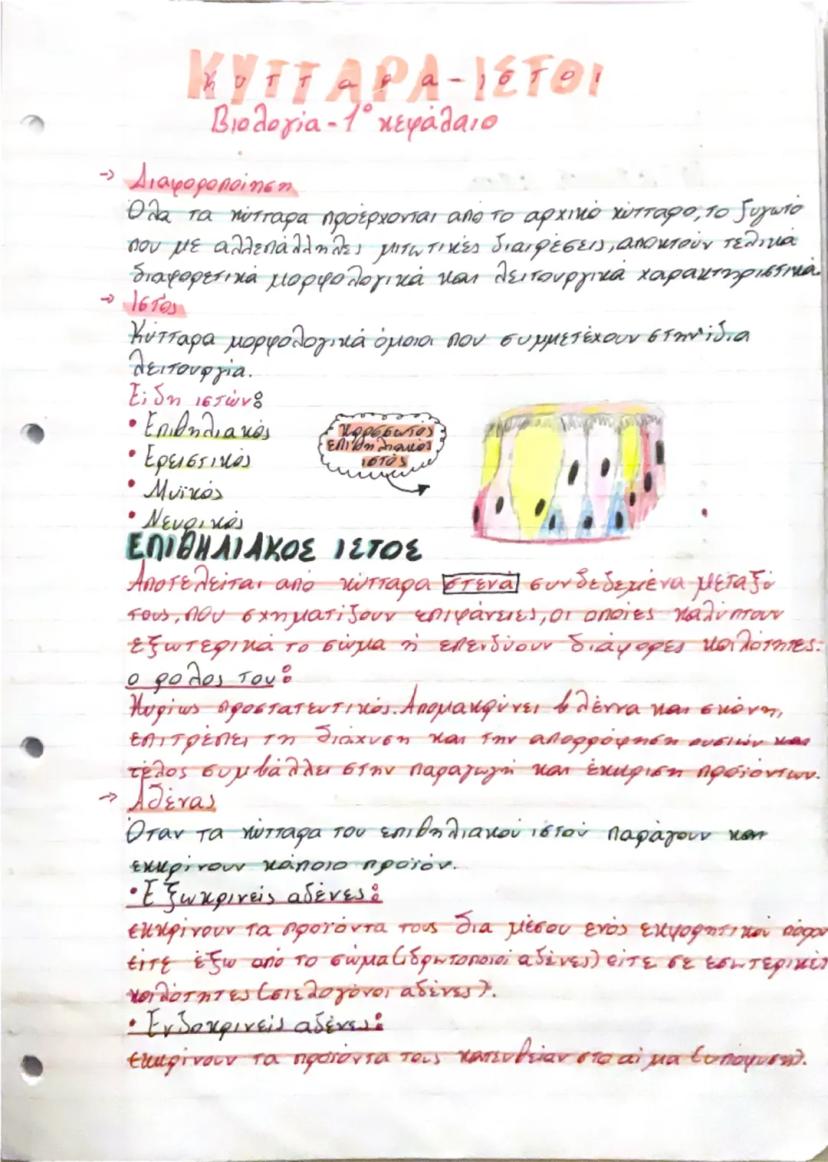 ΚΥΤΤΑΡΑ-ΙΣΤΟΙ
Βιολογία-1° κεφάλαιο
→ Διαφοροποίηση
Όλα τα κύτταρα προέρχονται από το αρχικό κύτταρο, το ζυγωτό
που με αλλεπάλληλες μιτωτικές διαιρέσεις, αποκτούν τελικά
διαφορετικά μορφολογικά και λειτουργικά χαρακτηριστικά.
→ Ιστός
Κύτταρα μορφολογικά όμοια που συμμετέχουν στην ίδια
λειτουργία.
Είδη ιστών:
• Επιθηλιακός
• Ερειστικός
• Μυϊκός
• Νευρικός
Κροσσωτός
επιθηλιακός
ιστός
ΕΠΙΘΗΛΙΑΚΟΣ ΙΣΤΟΣ
Αποτελείται από κύτταρα στενά συνδεδεμένα μεταξύ
τους, που σχηματίζουν επιφάνειες, οι οποίες καλύπτουν
εξωτερικά το σώμα ή επενδύουν διάφορες κοιλότητες.
ο ρολος του:
Κυρίως προστατευτικός. Απομακρύνει βλέννα και σκόνη,
επιτρέπει τη διάχυση και την απορρόφηση ουσιών και
τέλος συμβάλλει στην παραγωγή και έκκριση προϊόντων.
→ Αδένας
Όταν τα κύτταρα του επιθηλιακού ιστού παράγουν και
εκκρίνουν κάποιο προϊόν.
• Εξωκρινείς αδένες:
εκκρίνουν τα προϊόντα τους δια μέσου ενός εκφορητικού πόρου
είτε έξω από το σώμα (ιδρωτοποιοί αδένες) είτε σε εσωτερικές
κοιλότητες (σιελογόνοι αδένες).
• Ενδοκρινείς αδένες:
εκκρίνουν τα προϊόντα τους κατευθείαν στο αίμα (υπόφυση).